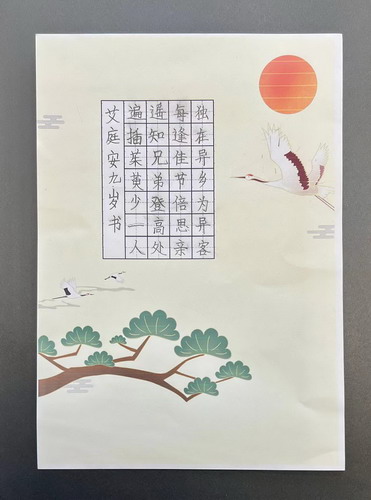 独在异乡为异客
每逢佳节倍思亲
遥知兄弟登高处
遍插茱萸少一人
艾庭安九岁书